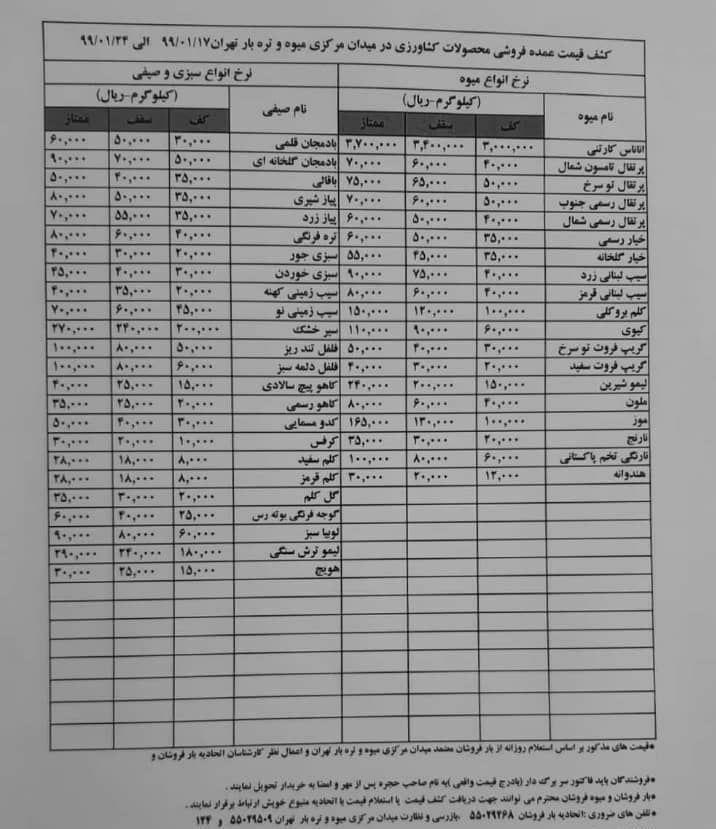 کشف قیمت عمده فروشی محصولات کشاورزی در میدان مرکزی میوه و تره بار تهران ۹۹/۰۱/۱۷ الی ۹۹/۰۱/۲۴
نرخ انواع میوه نرخ انواع سبزی و صیفی
نام میوه (کیلوگرم-ریال) نام صیفی (کیلوگرم-ریال)
کف سقف ممتاز کف سقف ممتاز
اناناس کارتنی ۳,۰۰۰,۰۰۰ ۳,۴۰۰,۰۰۰ ۳,۷۰۰,۰۰۰ بادمجان قلمی ۳۰,۰۰۰ ۵۰,۰۰۰ ۶۰,۰۰۰
پرتقال تامسون شمال ۴۰,۰۰۰ ۶۰,۰۰۰ ۷۰,۰۰۰ بادمجان گلخانه ای ۵۰,۰۰۰ ۷۰,۰۰۰ ۹۰,۰۰۰
پرتقال تو سرخ ۵۰,۰۰۰ ۶۵,۰۰۰ ۷۵,۰۰۰ باقالی ۳۵,۰۰۰ ۴۰,۰۰۰ ۵۰,۰۰۰
پرتقال رسمی جنوب ۵۰,۰۰۰ ۶۰,۰۰۰ ۷۰,۰۰۰ پیاز شیری ۳۵,۰۰۰ ۵۰,۰۰۰ ۸۰,۰۰۰
پرتقال رسمی شمال ۴۰,۰۰۰ ۵۰,۰۰۰ ۶۰,۰۰۰ پیاز زرد ۳۵,۰۰۰ ۵۵,۰۰۰ ۷۰,۰۰۰
خیار رسمی ۳۵,۰۰۰ ۵۰,۰۰۰ ۶۰,۰۰۰ تره فرنگی ۴۰,۰۰۰ ۶۰,۰۰۰ ۸۰,۰۰۰
خیار گلخانه ۳۵,۰۰۰ ۴۵,۰۰۰ ۵۵,۰۰۰ سبزی جور ۲۰,۰۰۰ ۳۰,۰۰۰ ۴۰,۰۰۰
سیب لبنانی زرد ۴۰,۰۰۰ ۷۵,۰۰۰ ۹۰,۰۰۰ سبزی خوردن ۳۰,۰۰۰ ۴۰,۰۰۰ ۴۵,۰۰۰
سیب لبنانی قرمز ۴۰,۰۰۰ ۶۰,۰۰۰ ۸۰,۰۰۰ سیب زمینی کهنه ۲۰,۰۰۰ ۳۵,۰۰۰ ۴۰,۰۰۰
کلم بروکلی ۱۰۰,۰۰۰ ۱۲۰,۰۰۰ ۱۵۰,۰۰۰ سیب زمینی نو ۴۵,۰۰۰ ۶۰,۰۰۰ ۷۰,۰۰۰
کیوی ۶۰,۰۰۰ ۹۰,۰۰۰ ۱۱۰,۰۰۰ سیر خشک ۲۰۰,۰۰۰ ۲۴۰,۰۰۰ ۲۷۰,۰۰۰
گریپ فروت تو سرخ ۳۰,۰۰۰ ۴۰,۰۰۰ ۵۰,۰۰۰ فلفل تند ریز ۵۰,۰۰۰ ۸۰,۰۰۰ ۱۰۰,۰۰۰
گریپ فروت سفید ۲۰,۰۰۰ ۳۰,۰۰۰ ۴۰,۰۰۰ فلفل دلمه سبز ۶۰,۰۰۰ ۸۰,۰۰۰ ۱۰۰,۰۰۰
لیمو شیرین ۱۵۰,۰۰۰ ۲۰۰,۰۰۰ ۲۴۰,۰۰۰ کاهو پیچ سالادی ۱۵,۰۰۰ ۲۵,۰۰۰ ۴۰,۰۰۰
ملون ۴۰,۰۰۰ ۶۰,۰۰۰ ۸۰,۰۰۰ کاهو رسمی ۲۰,۰۰۰ ۲۵,۰۰۰ ۳۵,۰۰۰
موز ۱۰۰,۰۰۰ ۱۳۰,۰۰۰ ۱۶۵,۰۰۰ کدو مسمایی ۳۰,۰۰۰ ۴۰,۰۰۰ ۵۰,۰۰۰
نارنج ۲۰,۰۰۰ ۳۰,۰۰۰ ۳۵,۰۰۰ کرفس ۱۰,۰۰۰ ۲۰,۰۰۰ ۳۰,۰۰۰
نارنگی تخم پاکستانی ۶۰,۰۰۰ ۸۰,۰۰۰ ۱۰۰,۰۰۰ کلم سفید ۸,۰۰۰ ۱۸,۰۰۰ ۲۸,۰۰۰
هندوانه ۱۲,۰۰۰ ۲۰,۰۰۰ ۳۰,۰۰۰ کلم قرمز ۸,۰۰۰ ۱۸,۰۰۰ ۲۸,۰۰۰
گل کلم ۲۰,۰۰۰ ۳۰,۰۰۰ ۳۵,۰۰۰
گوجه فرنگی بوته رس ۲۵,۰۰۰ ۴۰,۰۰۰ ۶۰,۰۰۰
لوبیا سبز ۶۰,۰۰۰ ۸۰,۰۰۰ ۹۰,۰۰۰
لیمو ترش سنگی ۱۸۰,۰۰۰ ۲۴۰,۰۰۰ ۲۹۰,۰۰۰
هویج ۱۵,۰۰۰ ۲۵,۰۰۰ ۳۰,۰۰۰
*قیمت های مذکور بر اساس استعلام روزانه از بار فروشان معتمد میدان مرکزی میوه و تره بار تهران و اعمال نظر کارشناسان اتحادیه بار فروشان و
*فروشندگان باید فاکتور سر برگ دار (بادرج قیمت واقعی )به نام صاحب حجره پس از مهر و امضا به خریدار تحویل نمایند .
*بار فروشان و میوه فروشان محترم می توانند جهت دریافت کشف قیمت یا استعلام قیمت با اتحادیه متبوع خویش ارتباط برقرار نمایند .
*تلفن های ضروری :اتحادیه بار فروشان ۵۵۰۲۹۲۶۸ ،بازرسی و نظارت میدان مرکزی میوه و تره بار تهران ۵۵۰۲۹۵۰۹ و ۱۲۴